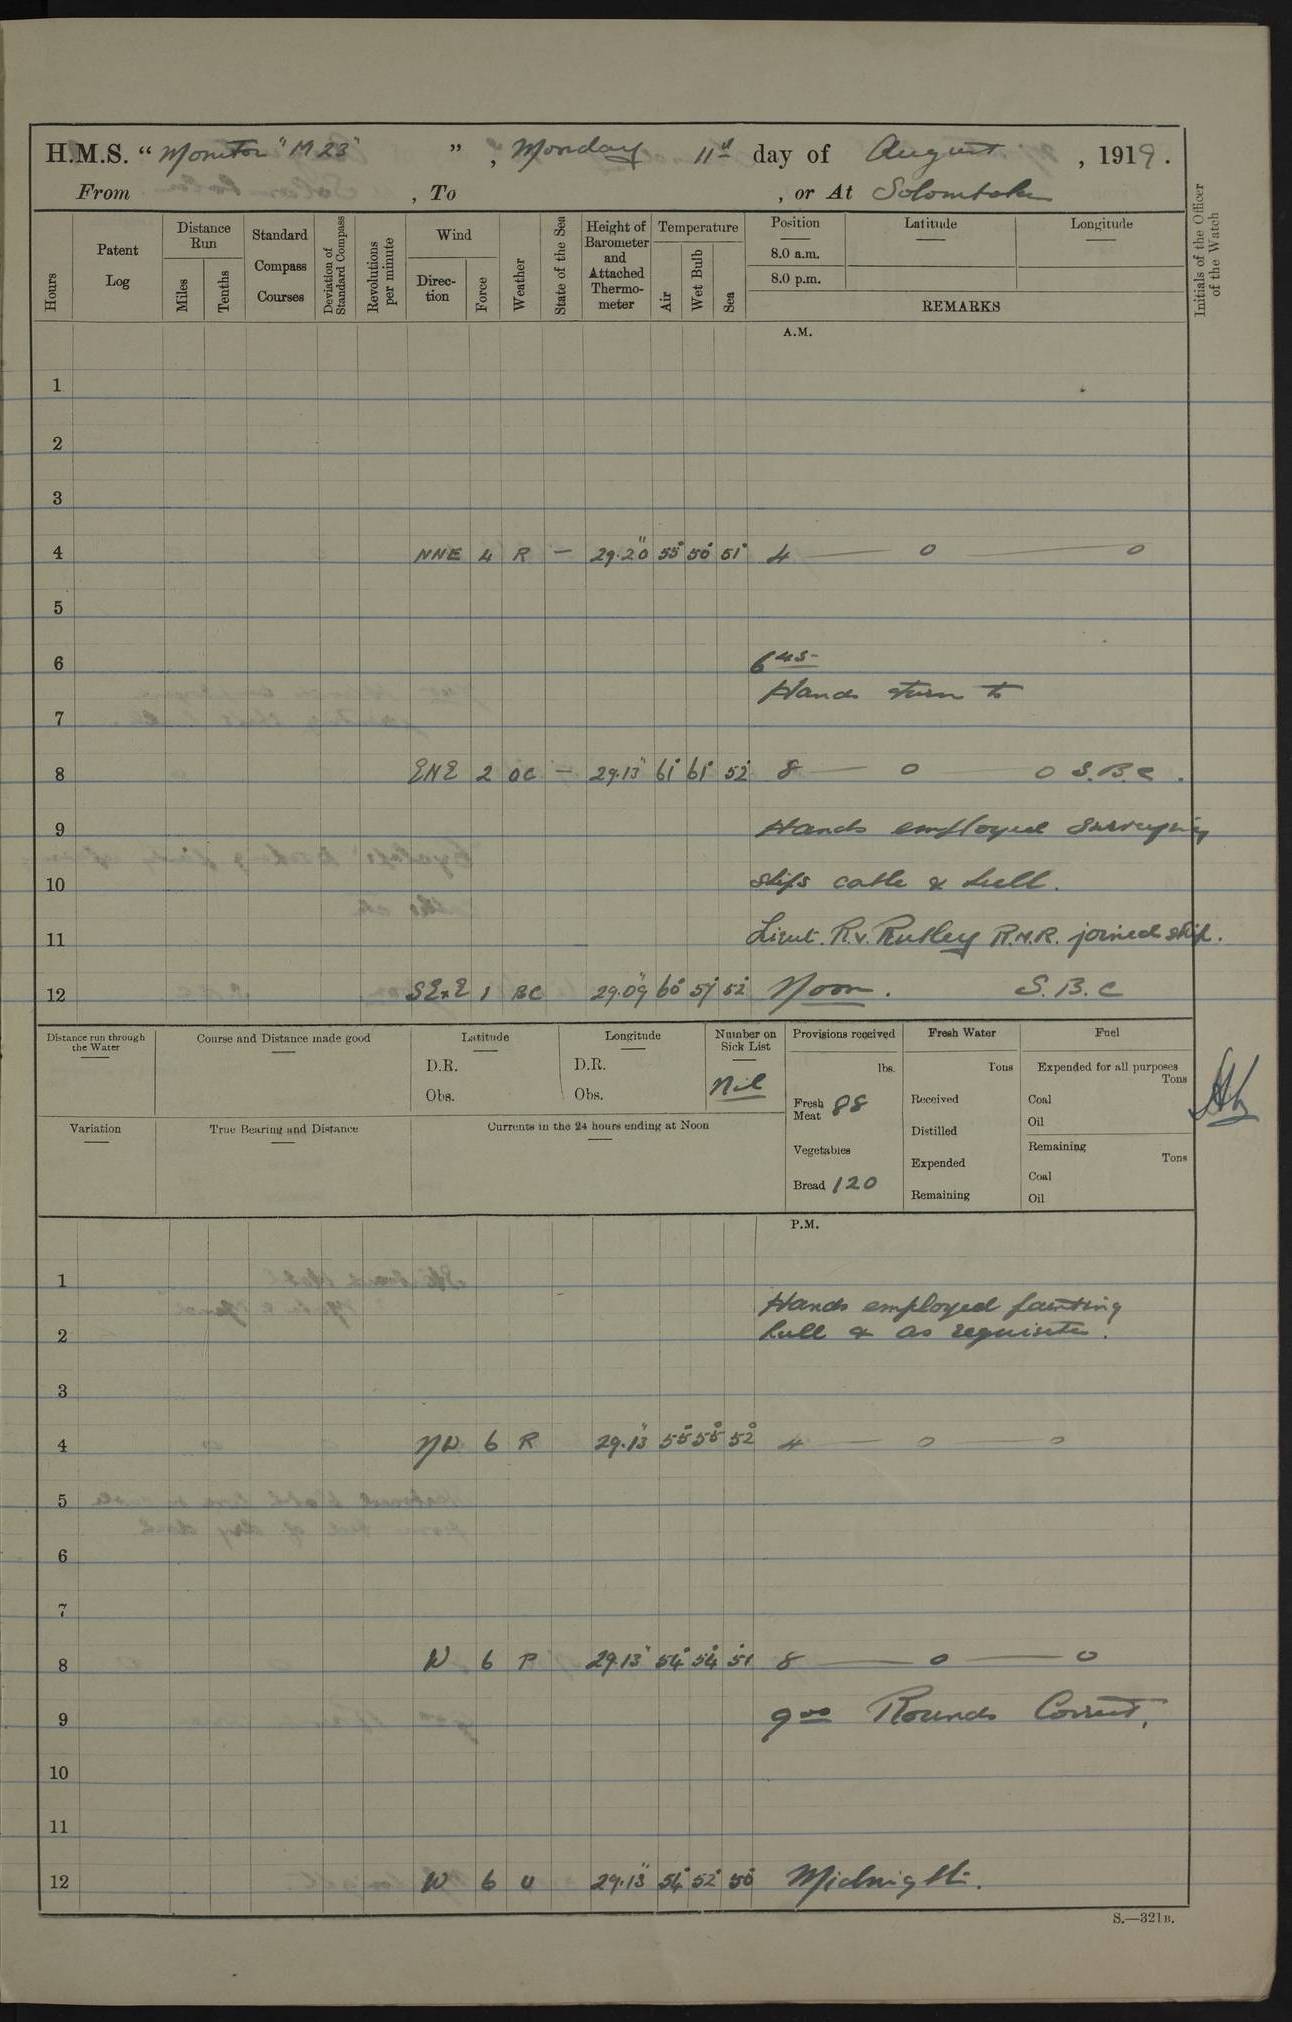 H.M.S. "Monitor "M 23" ", Monday 11th day of August, 1919.
From , To , or At Solombola
Hours
Patent Log
Distance Run
Miles
Tenths
Standard Compass Courses
Deviation of Standard Compass
Revolutions per minute
Wind
Direc-tion
Force
Weather
State of the Sea
Height of Barometer and Attached Thermo-meter
Temperature
Air
Wet Bulb
Sea
Position
8.0 a.m.
8.0 p.m.
Latitude
Longitude
REMARKS
Initials of the Officer of the Watch
A.M.
1
2
3
4 NNE 4 R — 29.20" 55° 50° 51° 4 — o — o
5
6 6 45
Hands turn to
7
8 ENE 2 OC — 29.13" 61° 61° 52° 8 — o — o S.B.C.
9 Hands employed surveying
10 ships cable & hull.
11 Lieut. R.V. Rutley R.N.R. joined ship.
12 SExE 1 BC 29.09" 60° 57° 52° Noon. S.B.C
Distance run through the Water
Course and Distance made good
Latitude
D.R.
Obs.
Longitude
D.R.
Obs.
Number on Sick List
Nil
Provisions received
lbs.
Fresh Meat 88
Vegetables
Bread 120
Fresh Water
Tons
Received
Distilled
Expended
Remaining
Fuel
Expended for all purposes
Tons
Coal
Oil
Remaining
Tons
Coal
Oil
Variation
True Bearing and Distance
Currents in the 24 hours ending at Noon
P.M.
1
Hands employed painting
2 hull & as requisite.
3
4 NW 6 R 29.13" 55° 55° 52° 4 — o — o
5
6
7
8 W 6 R 29.13" 54° 54° 51 8 — o — o
9 9 00 Rounds Correct.
10
11
12 W 6 U 29.13" 54° 52° 50° Midnight.
S.—321B.